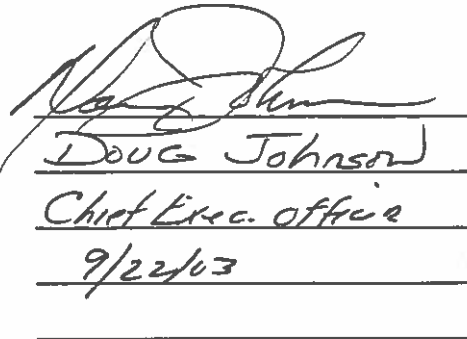 Doug Johnson
Chief Exec. officer
9/22/03